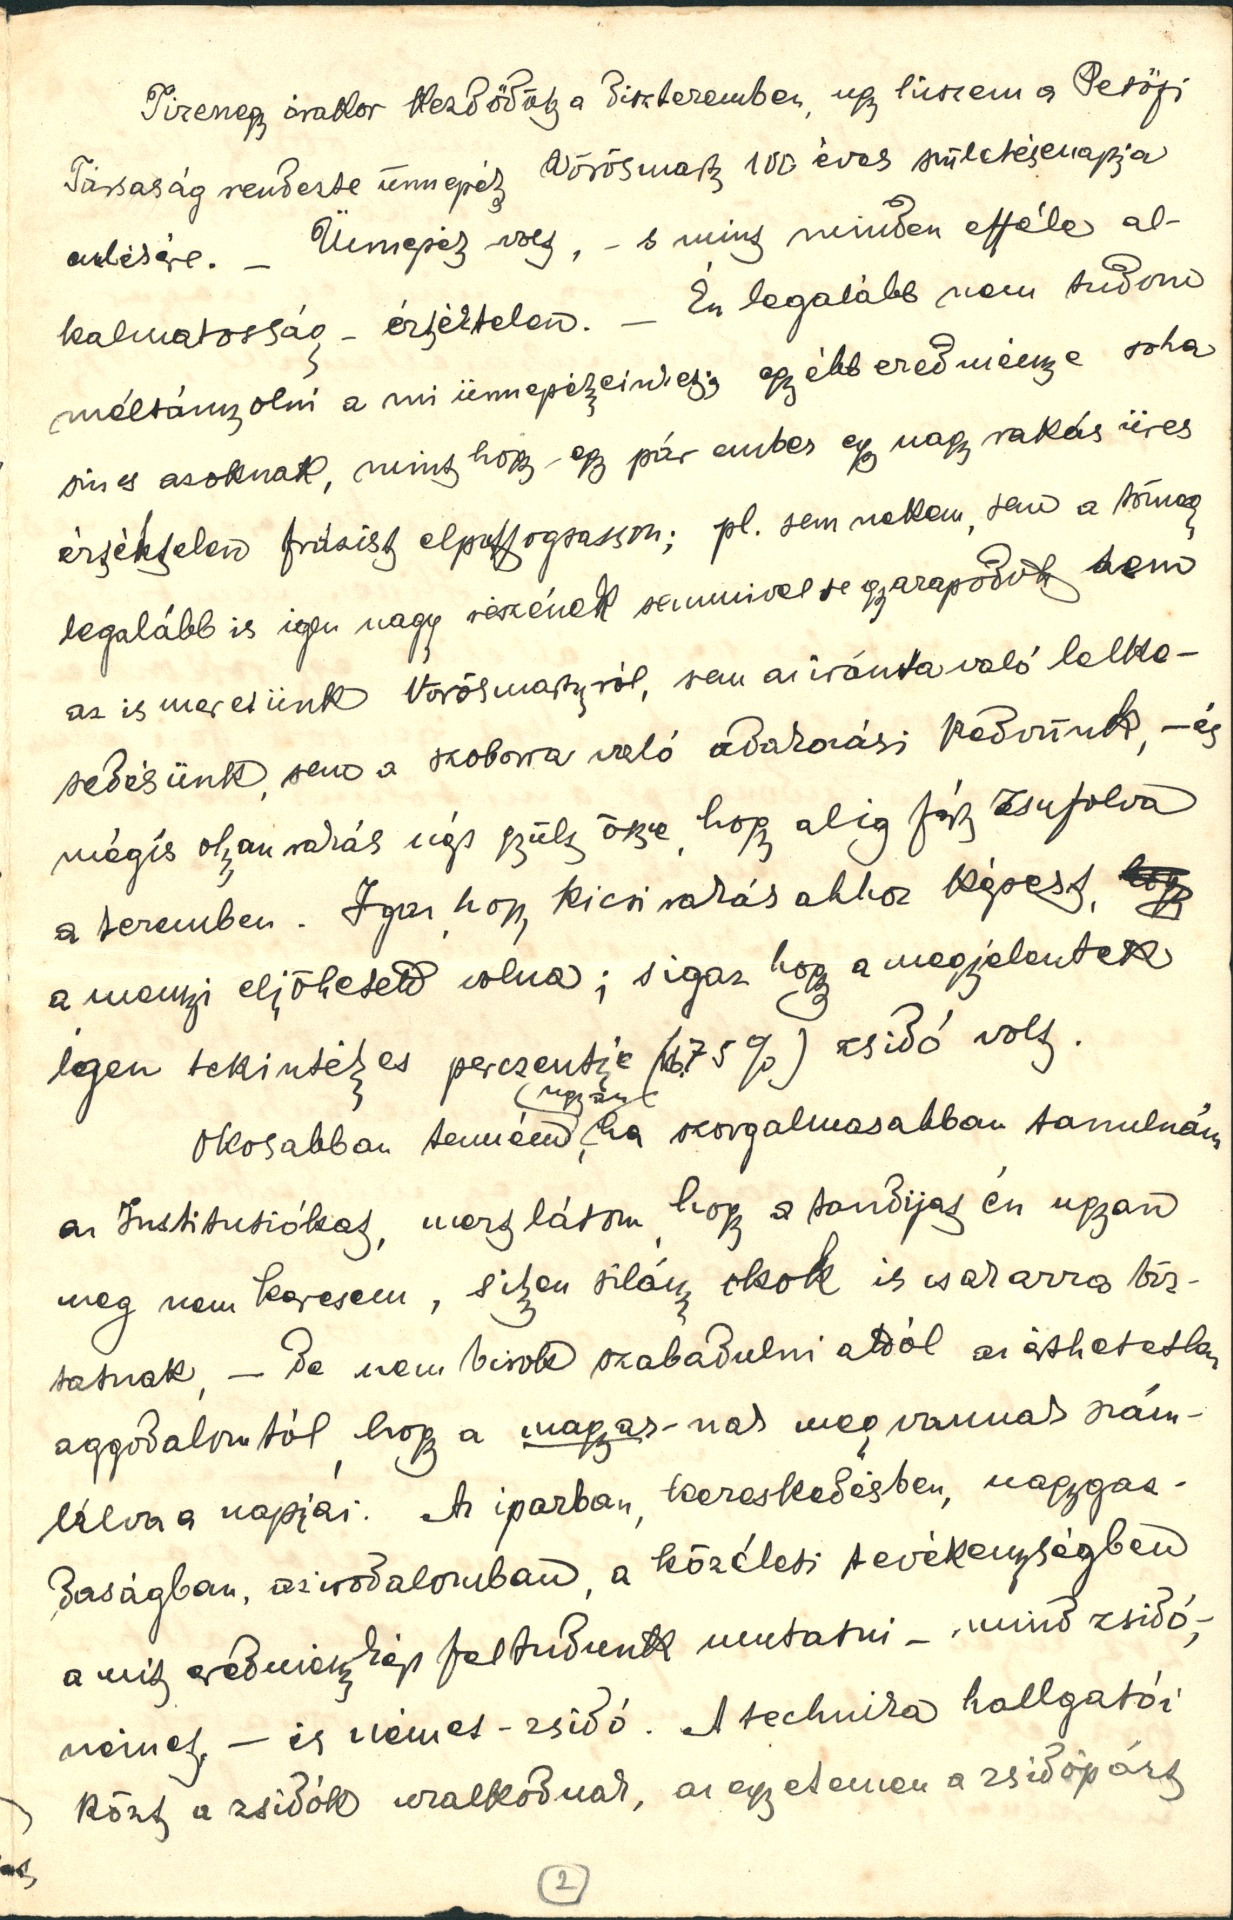 Tizenegy órakor kezdődött a díszteremben, ugy hiszem a Petőfi
Társaság rendezte ünnepély Vörösmarty 100 éves születésenapja
emlékére. – Ünnepély volt, – s mint minden efféle al-
kalmatosság – értéktelen. – Én legalább nem tudom
méltányolni a mi ünnepélyeinket; egyébb eredménye soha
sincs azoknak, mint hogy egy pár ember egy nagy rakás üres
értéktelen frázist elpuffogtasson; pl. sem nekem, sem a tömeg
legalább is igen nagy részének semmivel se gyarapodott sem
az ismeretünk Vörösmartyról, sem az iránta való lelke-
sedésünk, sem a szoborra való adakozási kedvünk, – és
mégis olyan rakás nép gyült össze, hogy alig fért zsufolva
a teremben. Igaz, hogy kicsi rakás ahhoz képest,
a mennyi eljöhetett volna; s igaz hogy a megjelentek
igen tekintélyes perczentje (kb. 75 %) zsidó volt.
(ugyan)
Okosabban tenném, ha szorgalmasabban tanulnám
az Institutiókat, mert látom, hogy a tandijat én ugyan
meg nem keresem, s ilyen silány okok is csak arra biz-
tatnak, – de nem birok szabadulni attól az érthetetlen
aggodalomtól, hogy a magyar-nak meg vannak szám-
lálva a napjai. Az iparban, kereskedésben, nagygaz-
daságban, az irodalomban, a közéleti tevékenységben
a mit eredménykép fel tudunk mutatni – mind zsidó,
német, – és német-zsidó. A technika hallgatói
közt a zsidók uralkodnak, az egyetemen a zsidópárt
2